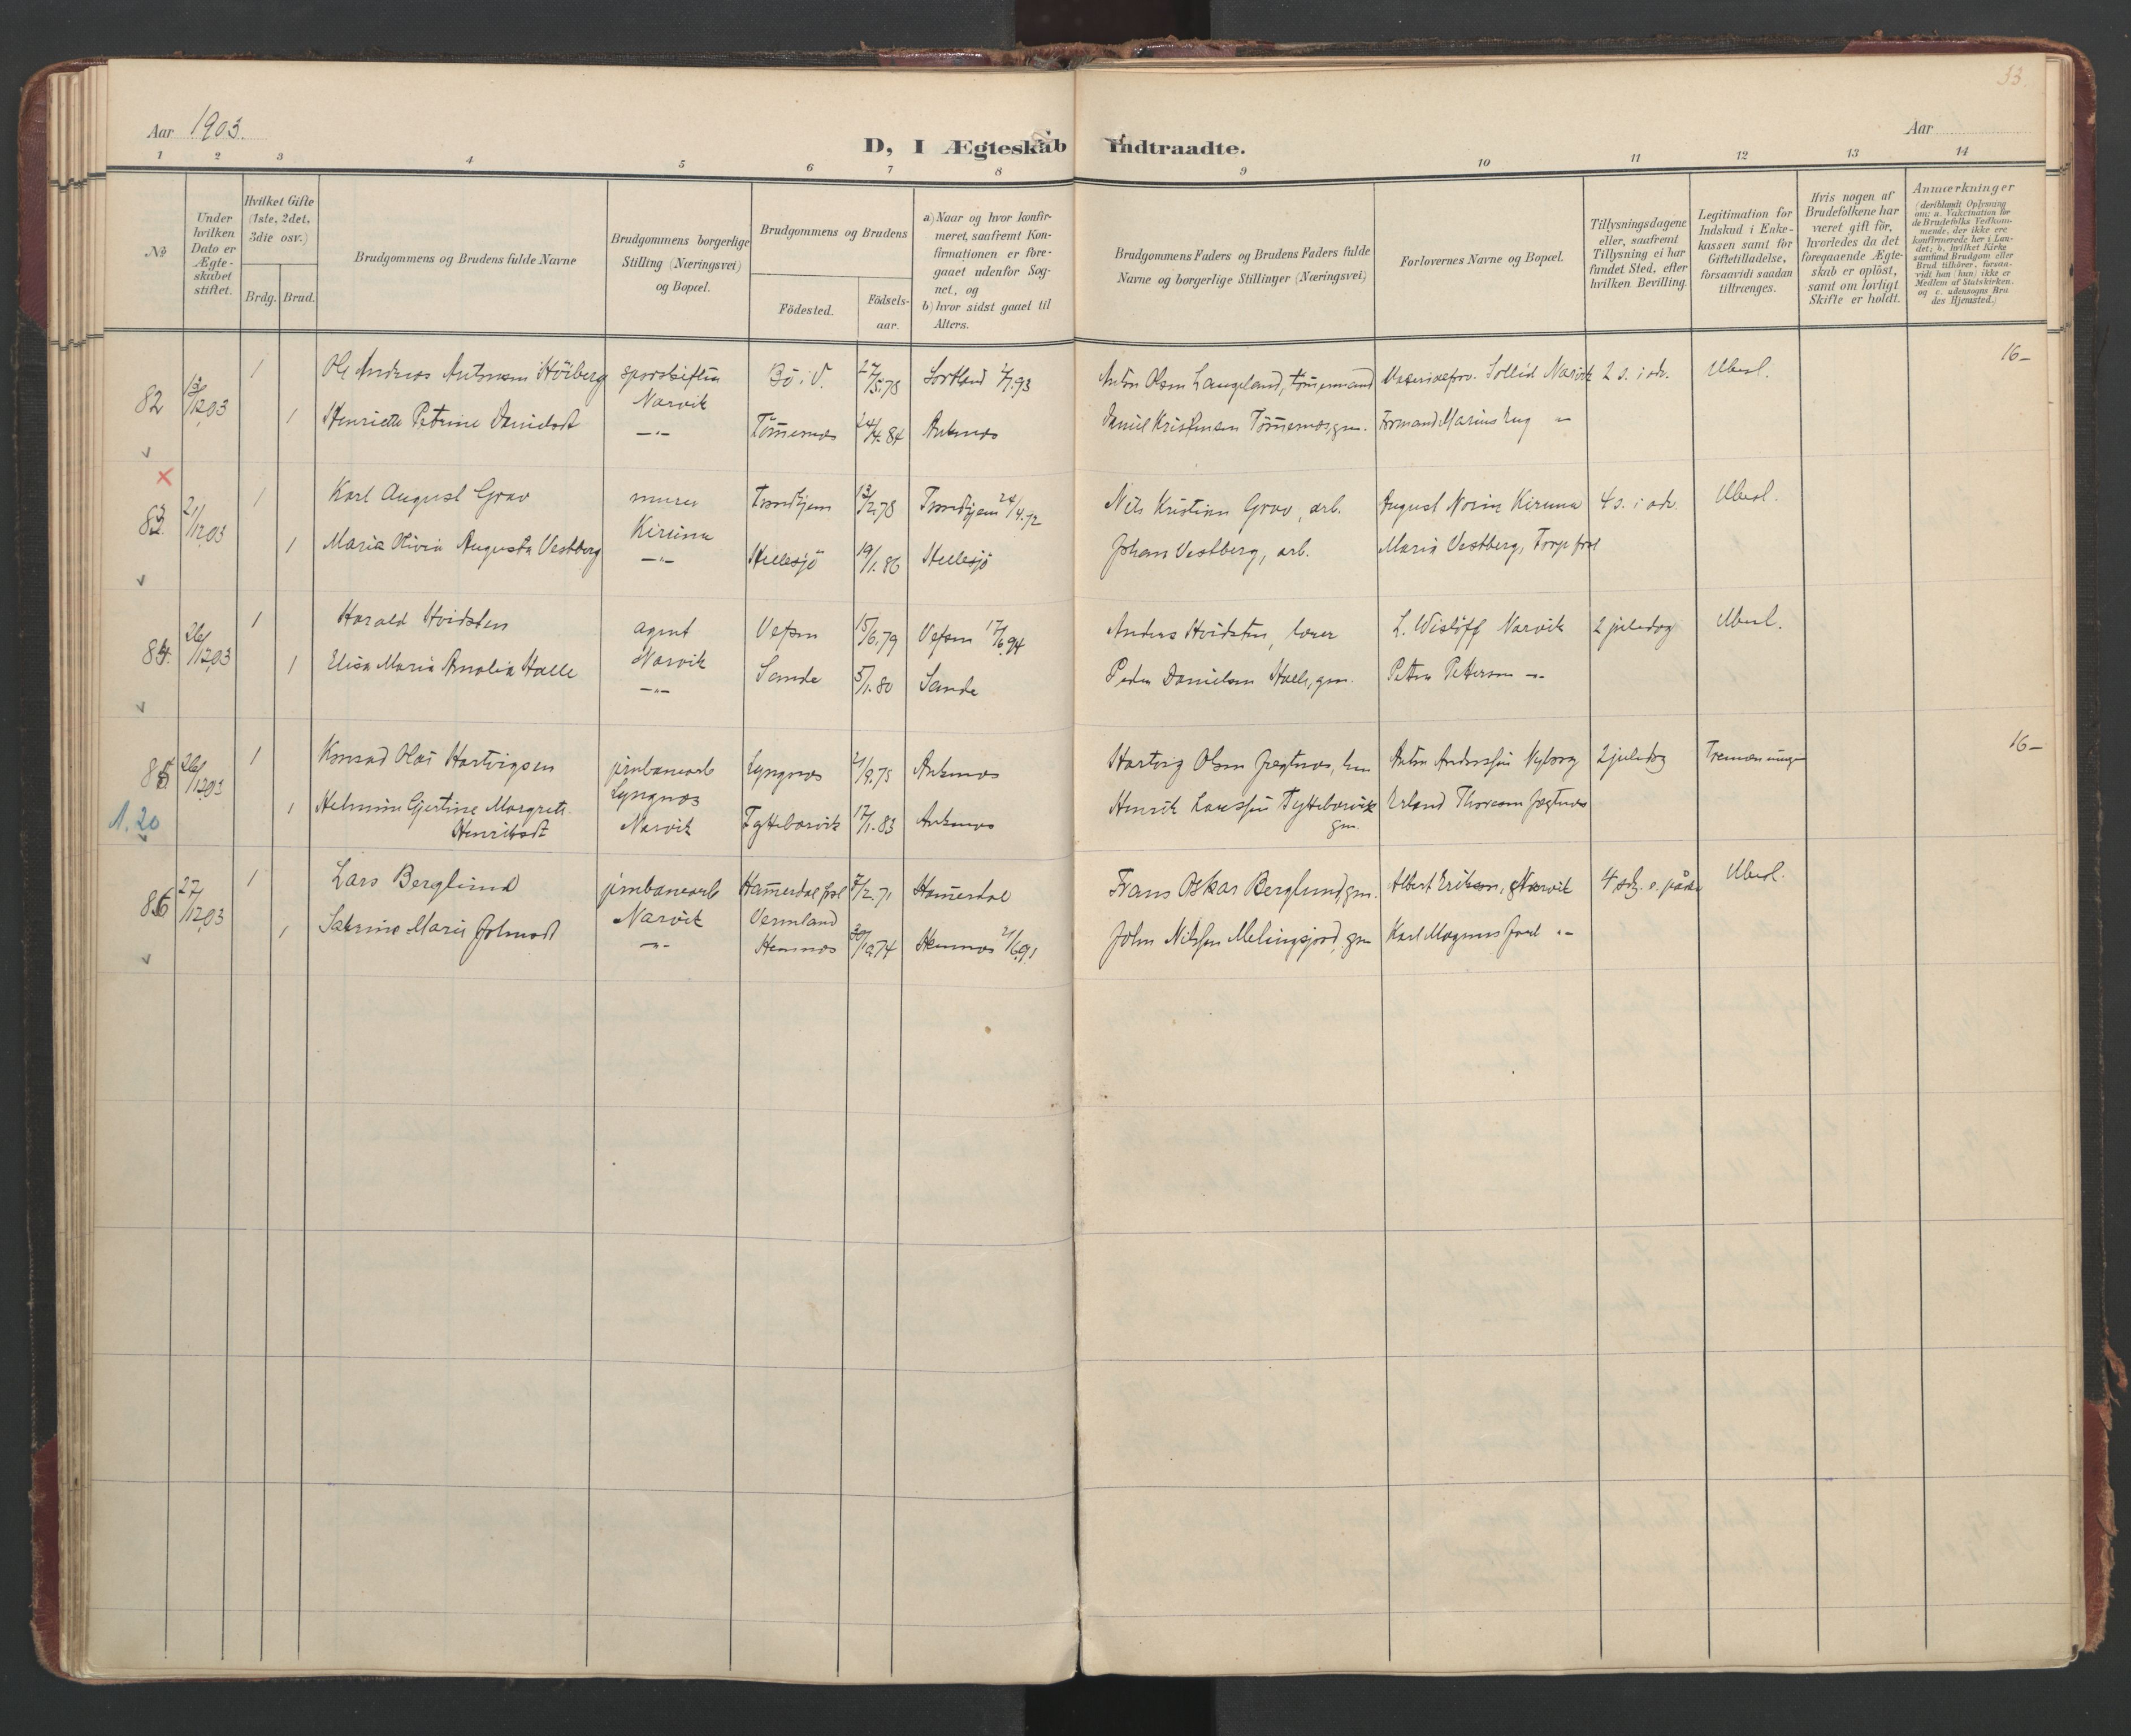 33
Aar 1903.
Aar
D, I Ægteskab Indtraadte.
1 2 3 4 5 6 7 8 9 10 11 12 13 14
No
Under hvilken Dato er Ægte-skabet stiftet.
Hvilket Gifte (1ste, 2det, 3die osv.)
Brdg. Brud.
Brudgommens og Brudens fulde Navne
Brudgommens borgerlige Stilling (Næringsvei) og Bopæl.
Brudgommens og Brudens
Födested.
Födsels-aar.
a) Naar og hvor konfir-meret, saafremt Kon-firmationen er fore-gaaet udenfor Sog-net, og
b) hvor sidst gaaet til Alters.
Brudgommens Faders og Brudens Faders fulde Navne og borgerlige Stillinger (Næringsvei)
Forlovernes Navne og Bopæl.
Tillysningsdagene eller, saafremt Tillysning ei har fundet Sted, efter hvilken Bevilling.
Legitimation for Indskud i Enke-kassen samt for Giftetilladelse, forsaavidt saadan tiltrænges.
Hvis nogen af Brudefolkene har været gift för, hvorledes da det foregaaende Ægte-skab er oplöst, samt om lovligt Skifte er holdt.
Anmærkninger (deriblandt Oplysning om: a. Vakcination for de Brudefolks Vedkom-mende, der ikke ere konfirmerede her i Lan-det; b. hvilket Kirke samfund Brudgom eller Brud tilhörer, forsaa-vidt han (hun) ikke er Medlem af Statskirken, og c. udensogns Bru des Hjemsted.)
82 13/12.03 1 Ole Andreas Antonsen Höiberg sporskifter Bö i V. 27/5.78 Sortland 2/7.93 Anton Olsen Langeland, tömmermand Sollid Narvik 2 s. i adv. Ubesl. 16-
Narvik
1 Henriette Petrine Danielsdt -"- Tömmernes 24/4.84 Ankenes Daniel Kristensen Tömmernes, gm. Formand Marius Eng -"-
83. 21/12.03 1 Karl August Grav murer Trondhjem 13/2.78 Trondhjem 24/4.92 Nils Kristian Grav, arb. August Norin Kiruna 4 s. i adv. Ubesl.
Kiruna
1 Maria Olivia Augusta Vestberg -"- Hellesjö 19/1.86 Hellesjö Johan Vestberg, arb. Maria Vestberg, Torp
84. 26/12.03 1 Harald Hvidsten agent Vefsn 15/6.79 Vefsn 17/6.94 Anders Hvidsten, lærer L. Wislöff Narvik 2 juledag Ubesl.
Narvik
1 Elisa Maria Amalia Halle -"- Sande 5/1.80 Sande Peder Danielsen Halle, gm. Petra Petterson -"-
85 26/12.03 1 Konrad Olai Hartvigsen jernbanearb Lyngnes 21/9.75 Ankenes Hartvig Olsen Jægtnes, Anton Anderssen Nyborg 2 juledag Tremænninge 16-
Lyngnes
1 Helmine Gjertine Margrete Narvik Tyttebærvik 17/1.83 Ankenes Henrik Larssen Tyttebærvik Erland Thoresen Jægtnes
Henriksdt gm.
1.20
86 27/12.03 1 Lars Berglund jernbanearb Hammerdal 7/2.71 Hammerdal Frans Oskar Berglund, gm. Albert Eriksen, Narvik 4 Ubesl.
Narvik Vermland
1 Sabrine Marie Johnsdt -"- Hemnes 30/10.74 Hemnes 21/6.91 John Nilssen Melingsjord, gm Karl Magnus -"-